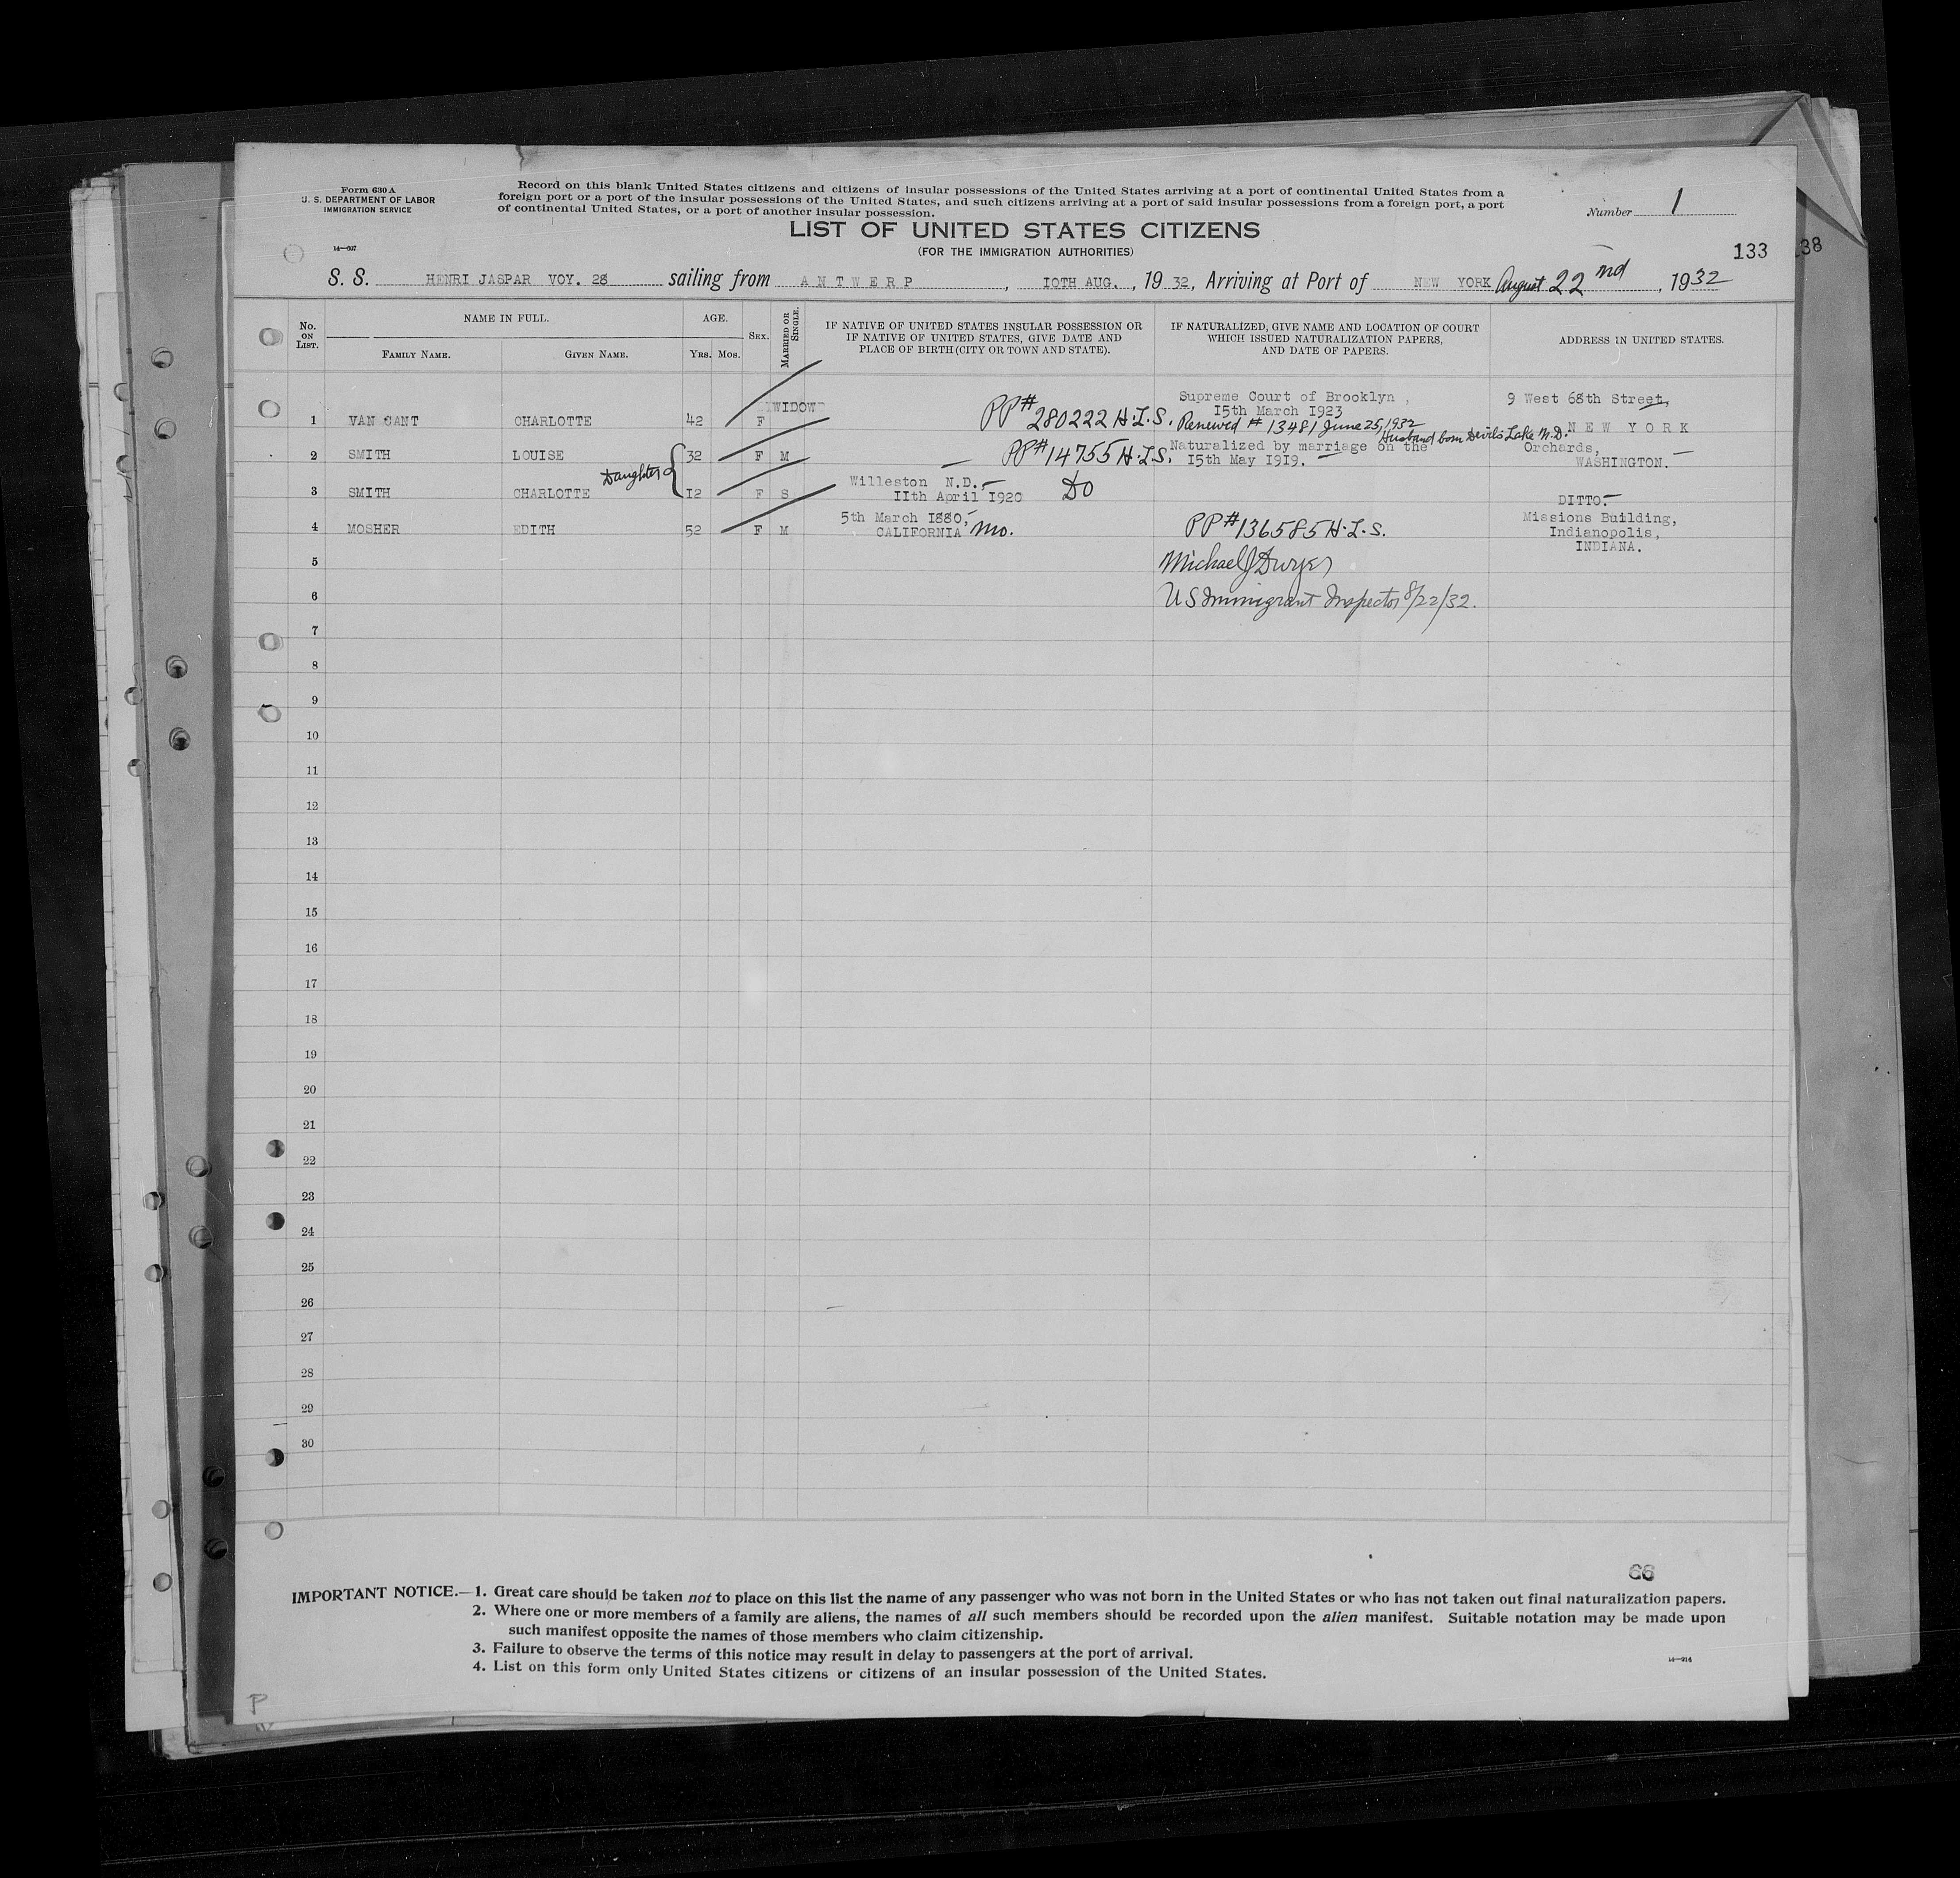 Form 630 A
U. S. DEPARTMENT OF LABOR
IMMIGRATION SERVICE
14—907
Record on this blank United States citizens and citizens of insular possessions of the United States arriving at a port of continental United States from a
foreign port or a port of the insular possessions of the United States, and such citizens arriving at a port of said insular possessions from a foreign port, a port
of continental United States, or a port of another insular possession.
Number 1
LIST OF UNITED STATES CITIZENS
(FOR THE IMMIGRATION AUTHORITIES)
133
38
S. S. HENRI JASPAR VOY. 28 sailing from ANTWERP, IOTH AUG., 1932, Arriving at Port of NEW YORK August 22nd, 1932
No. ON LIST.
NAME IN FULL.
FAMILY NAME. GIVEN NAME.
AGE.
YRS. MOS.
SEX.
MARRIED OR SINGLE.
IF NATIVE OF UNITED STATES INSULAR POSSESSION OR
IF NATIVE OF UNITED STATES, GIVE DATE AND
PLACE OF BIRTH (CITY OR TOWN AND STATE).
IF NATURALIZED, GIVE NAME AND LOCATION OF COURT
WHICH ISSUED NATURALIZATION PAPERS,
AND DATE OF PAPERS.
ADDRESS IN UNITED STATES.
1 VAN CANT CHARLOTTE 42 F WIDOW PP# 280222 H.L.S.
Supreme Court of Brooklyn,
15th March I923
Renewed # 13481 June 25, 1932
9 West 68th Street,
NEW YORK
2 SMITH LOUISE 32 F M — PP# 14755 H.L.S.
Husband born Devil's Lake N.D.
Naturalized by marriage on the
15th May 1919. —
Orchards,
WASHINGTON. —
Daughter
3 SMITH CHARLOTTE I2 F S
Willeston N.D. —
IIth April I920 Do
DITTO —
4 MOSHER EDITH 52 F M
5th March I880,
CALIFORNIA Mo.
PP# 136585 H.L.S.
Missions Building,
Indianopolis,
INDIANA.
5 Michael J Dwyer
6 US Immigrant Inspector 8/22/32.
7
8
9
10
11
12
13
14
15
16
17
18
19
20
21
22
23
24
25
26
27
28
29
30
66
IMPORTANT NOTICE.—1. Great care should be taken not to place on this list the name of any passenger who was not born in the United States or who has not taken out final naturalization papers.
2. Where one or more members of a family are aliens, the names of all such members should be recorded upon the alien manifest. Suitable notation may be made upon
such manifest opposite the names of those members who claim citizenship.
3. Failure to observe the terms of this notice may result in delay to passengers at the port of arrival.
4. List on this form only United States citizens or citizens of an insular possession of the United States.
14—914
P